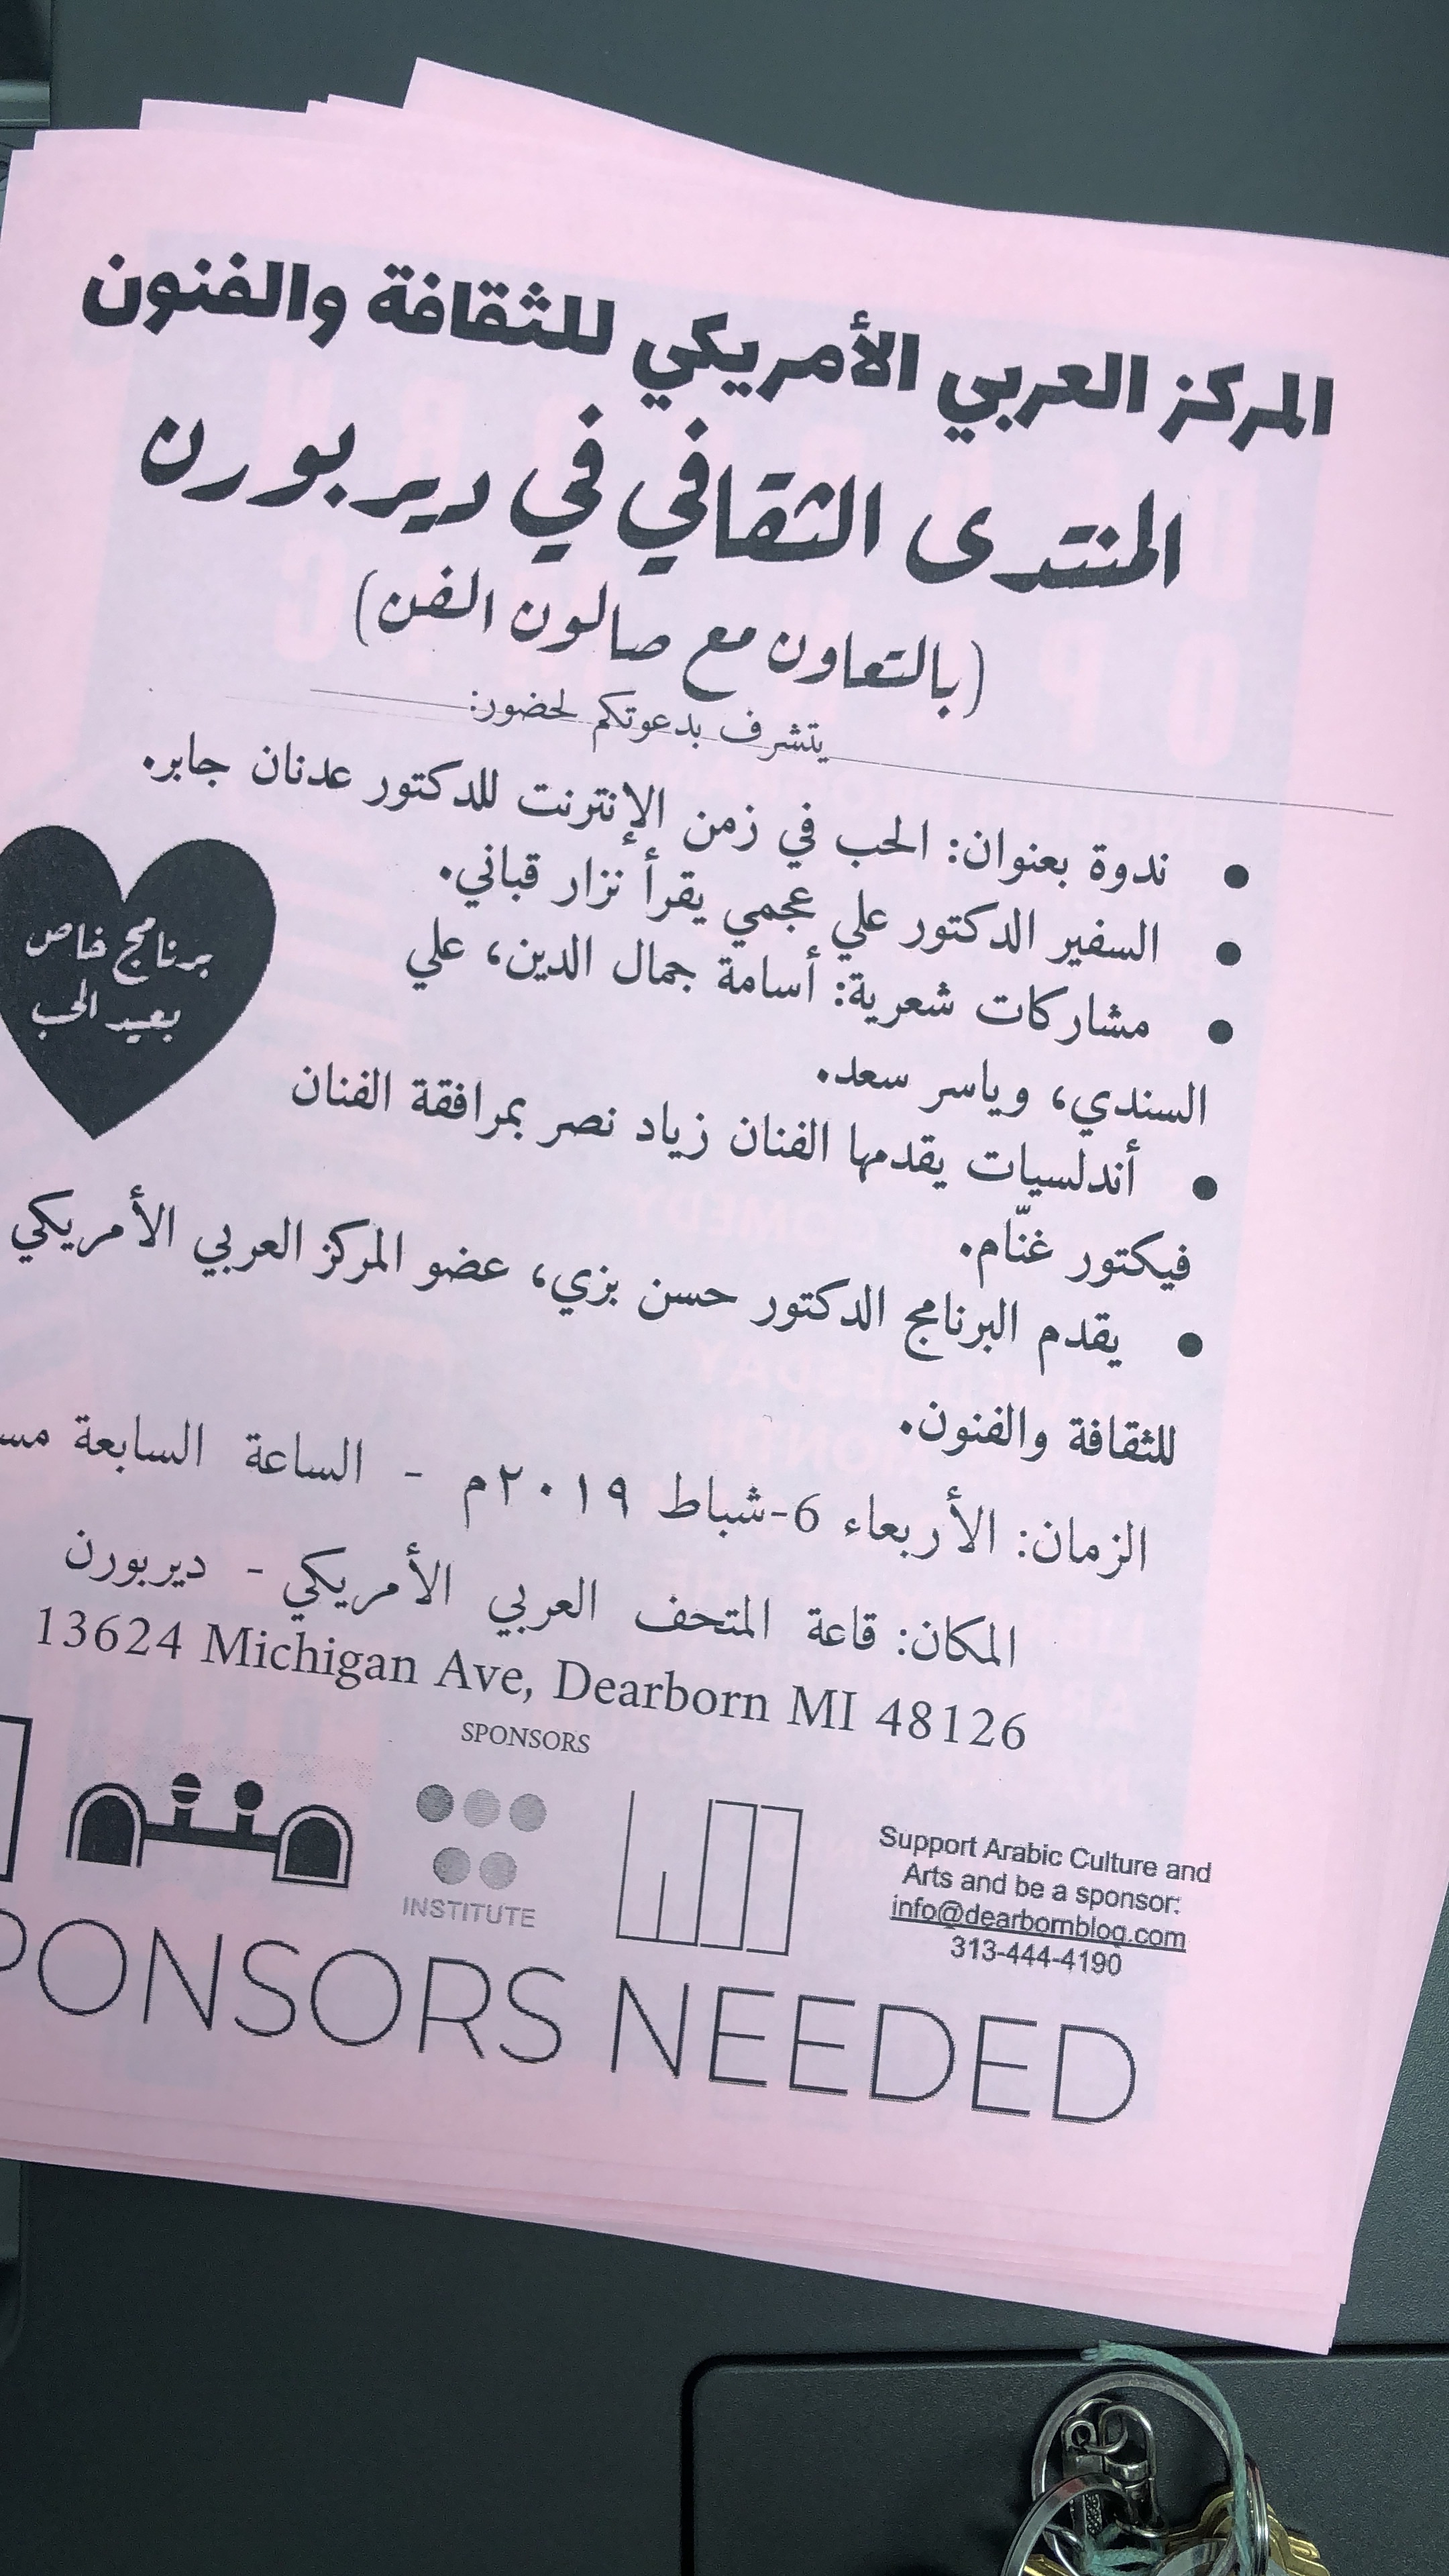 المركز العربي الأمريكي للثقافة والفنون
المنتدى الثقافي في ديربورن
(بالتعاون مع صالون الفن)
يتشرف بدعوتكم لحضور:
● ندوة بعنوان: الحب في زمن الإنترنت للدكتور عدنان جابر.
● السفير الدكتور علي عجمي يقرأ نزار قباني.
● مشاركات شعرية: أسامة جمال الدين، علي
السندي، وياسر سعد.
● أندلسيات يقدمها الفنان زياد نصر بمرافقة الفنان
فيكتور غنّام.
● يقدم البرنامج الدكتور حسن بزي، عضو المركز العربي الأمريكي
للثقافة والفنون.
برنامج خاص
بعيد الحب
الزمان: الأربعاء 6-شباط ٢٠١٩م - الساعة السابعة مس
المكان: قاعة المتحف العربي الأمريكي - ديربورن
13624 Michigan Ave, Dearborn MI 48126
SPONSORS
INSTITUTE
Support Arabic Culture and
Arts and be a sponsor:
info@dearbornblog.com
313-444-4190
PONSORS NEEDED